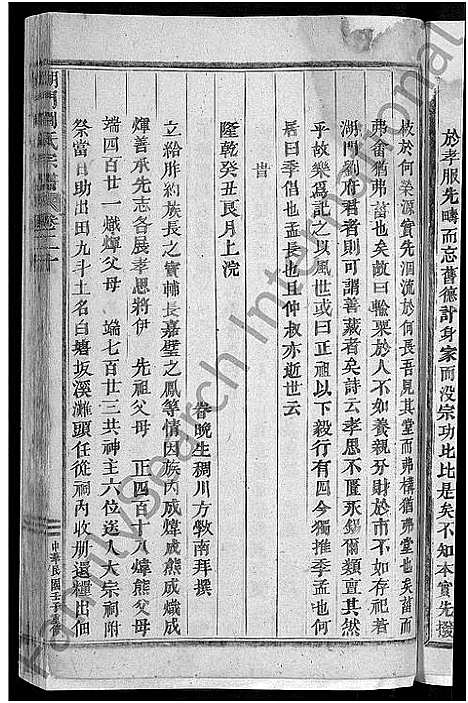 於孝服先疇而忘舊德計身家而没宗功比比是矣不知本實先撥
枝於何榮源實先涸流於何長吾見其堂而弗構猶弗堂也矣菑而
弗畬猶弗菑也矣故曰輸粟於人不如養親分財於市不如存祀若
湖門劉府君者則可謂善藏者矣詩云孝思不匱永錫爾類亶其然
乎故樂爲記之以風世或曰正祖以下毅行有四今獨推季孟也何
居曰季倡也孟長也且仲叔亦逝世云
旹
隆乾癸丑艮月上浣
眷晚生稠川方敦南拜撰
立給胙約族長之寶輔長嘉璧之鳳等情因族内成煒成熊成熾成
煇善承先志各展孝思將伊 先祖父母 正四百十八煒熊父母
端四百廿一熾煇父母 端七百廿三共神主六位送入大宗祠附
祭當日助出田九斗土名白塘坂溪滩頭任從祠内收册還糧出佃
湖門劉氏宗譜 卷二十
中華民國壬子重修
FamilySearch International